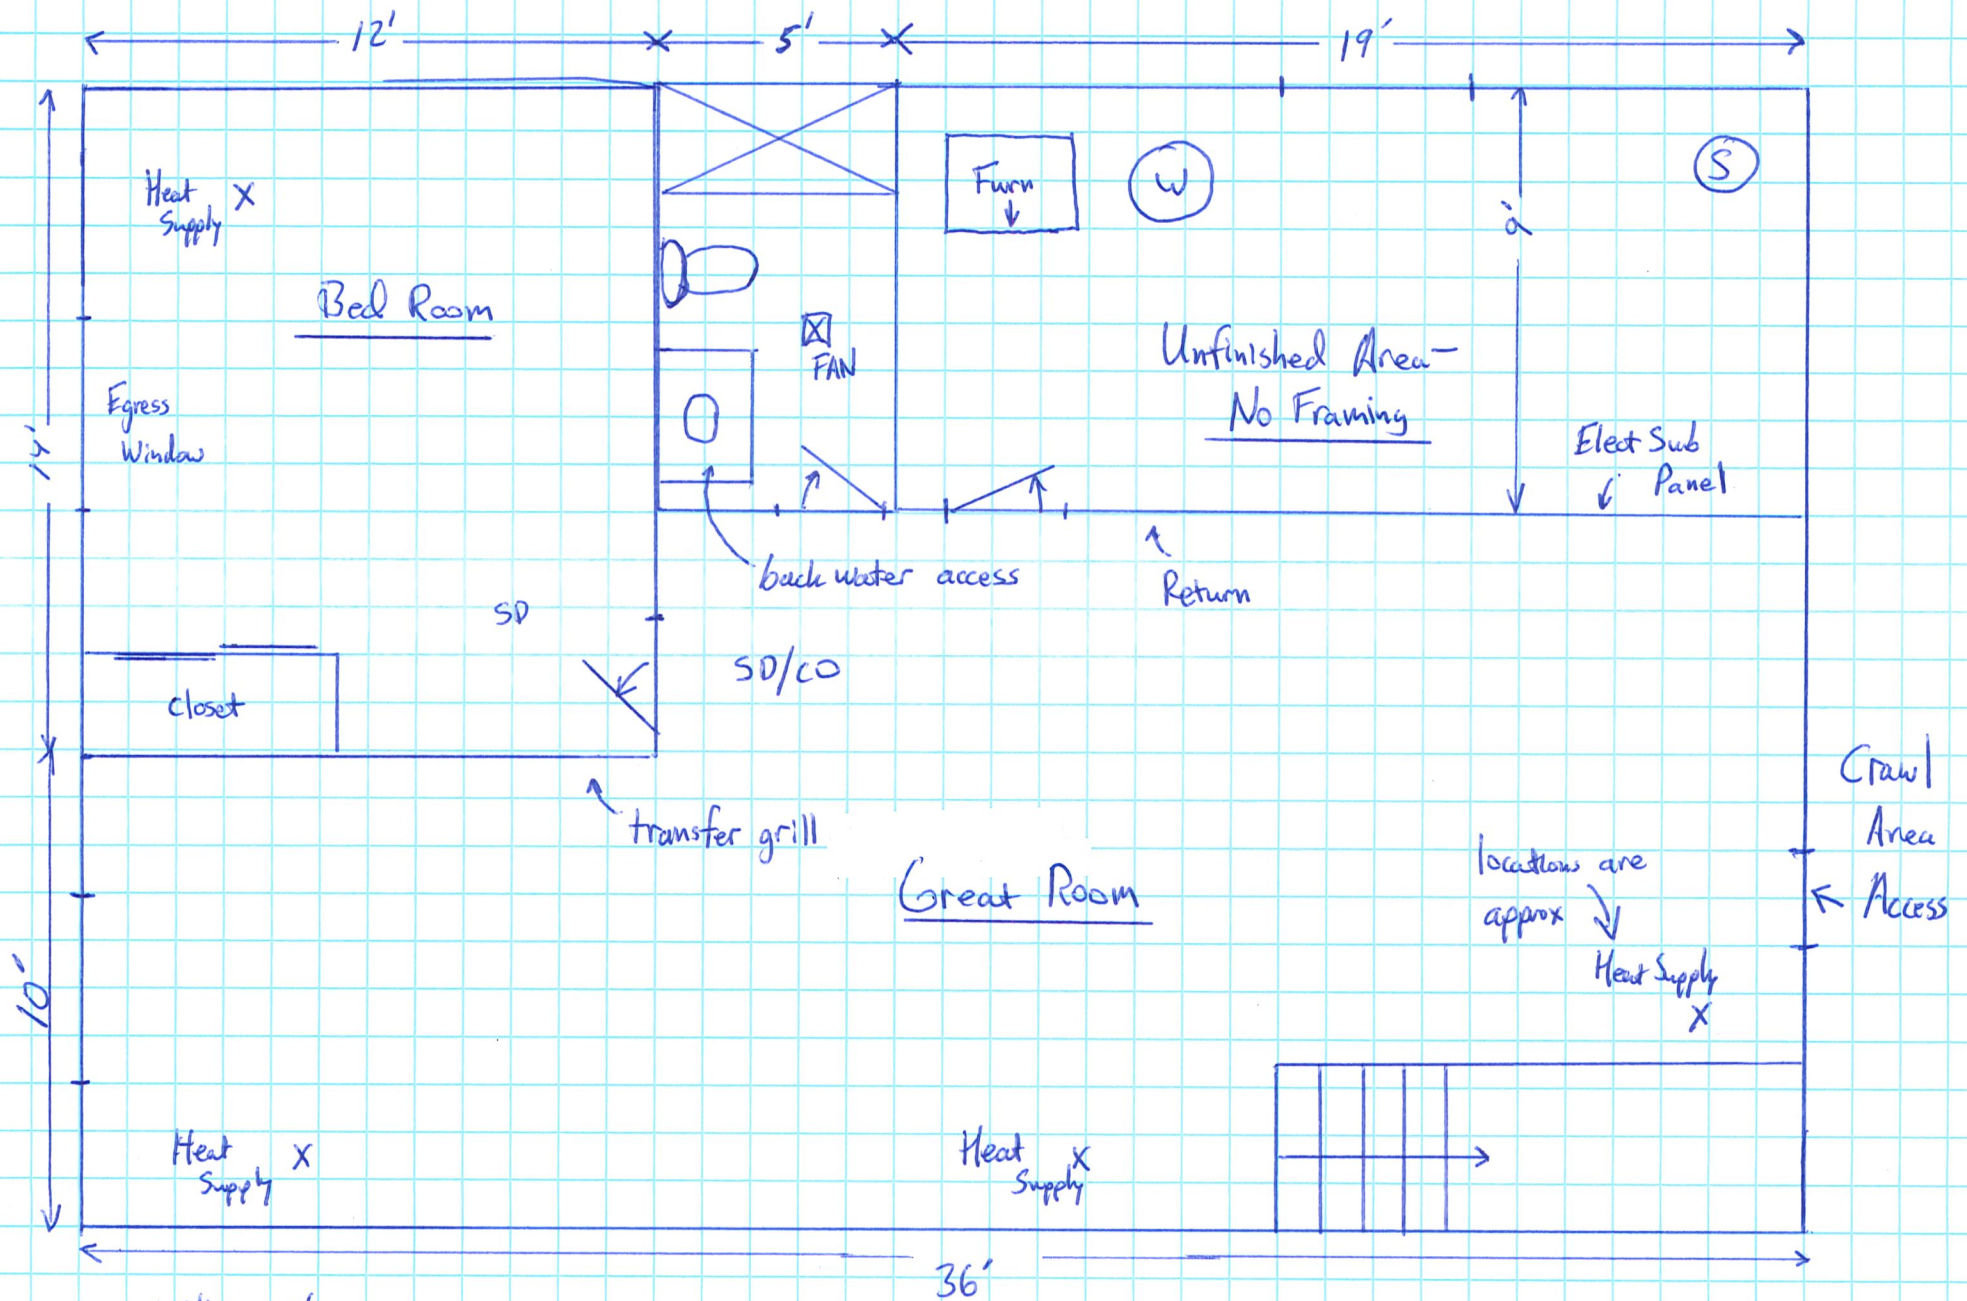 12'
5'
19'
Heat
Supply X
Bed Room
Egress
Window
14'
Furn
W
S
9'
FAN
Unfinished Area-
No Framing
Elect Sub
Panel
back water access
Return
SD
SD/CO
closet
transfer grill
Great Room
Crawl
Area
Access
locations are
approx
Heat Supply
X
10'
Heat
Supply X
Heat
Supply X
36'